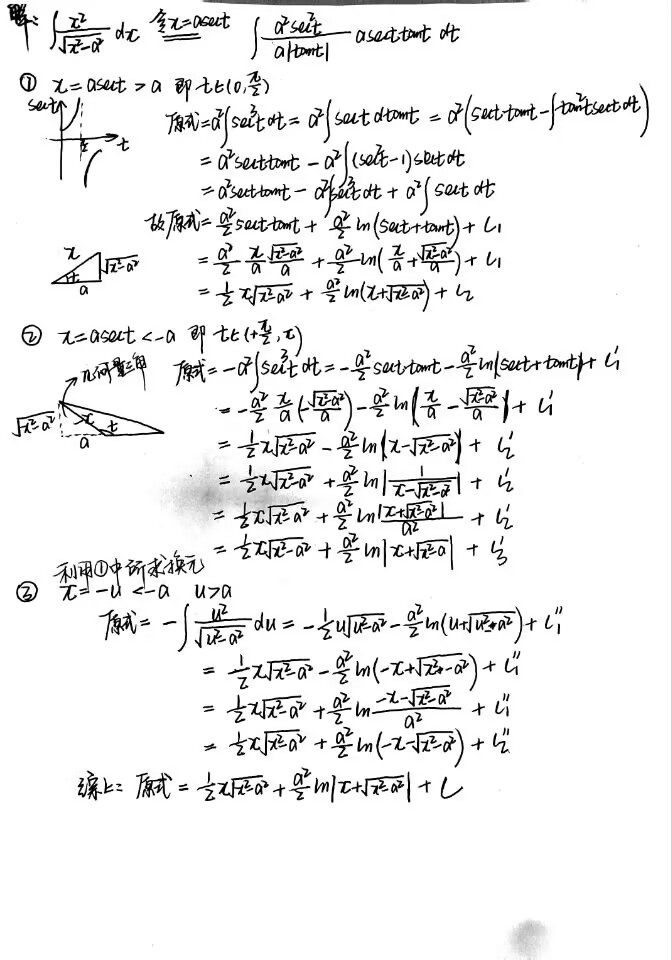 解: ∫ x²/√(x²-a²) dx 令x=asect ∫ a²sec²t/(a|tant|) asect tant dt
① x=asect>a 即 t∈(0,π/2)
sect
π/2 t
原式=a²∫sec³t dt = a²∫sect dtant = a²(sect·tant-∫tan²t sect dt)
= a²sect tant - a²∫(sec²t-1)sect dt
= a²sect tant - a²∫sec³t dt + a²∫sect dt
故原式= a²/2 sect·tant + a²/2 ln(sect+tant)+C₁
x √(x²-a²) t a
= a²/2 x/a √(x²-a²)/a + a²/2 ln(x/a+√(x²-a²)/a)+C₁
= 1/2 x√(x²-a²) + a²/2 ln(x+√(x²-a²))+C₂
② x=asect<-a 即 t∈(+π/2,π)
几何量三角
原式=-a²∫sec³t dt = -a²/2 sect·tant - a²/2 ln|sect+tant|+C₁'
√(x²-a²) -x t a
= -a²/2 x/a (-√(x²-a²)/a) - a²/2 ln|x/a - √(x²-a²)/a| + C₁'
= 1/2 x√(x²-a²) - a²/2 ln|x-√(x²-a²)| + C₂'
= 1/2 x√(x²-a²) + a²/2 ln|1/(x-√(x²-a²))| + C₂'
= 1/2 x√(x²-a²) + a²/2 ln |x+√(x²-a²)|/a² + C₂'
= 1/2 x√(x²-a²) + a²/2 ln|x+√(x²-a)| + C₃'
利用①中所求换元
③ x=-u<-a u>a
原式= -∫ u²/√(u²-a²) du = -1/2 u√(u²-a²) - a²/2 ln(u+√(u²-a²))+C₁''
= 1/2 x√(x²-a²) - a²/2 ln(-x+√(x²-a²)) + C₁''
= 1/2 x√(x²-a²) + a²/2 ln (-x-√(x²-a²))/a² + C₁''
= 1/2 x√(x²-a²) + a²/2 ln(-x-√(x²-a²)) + C₂''
综上: 原式= 1/2 x√(x²-a²) + a²/2 ln|x+√(x²-a²)| + C